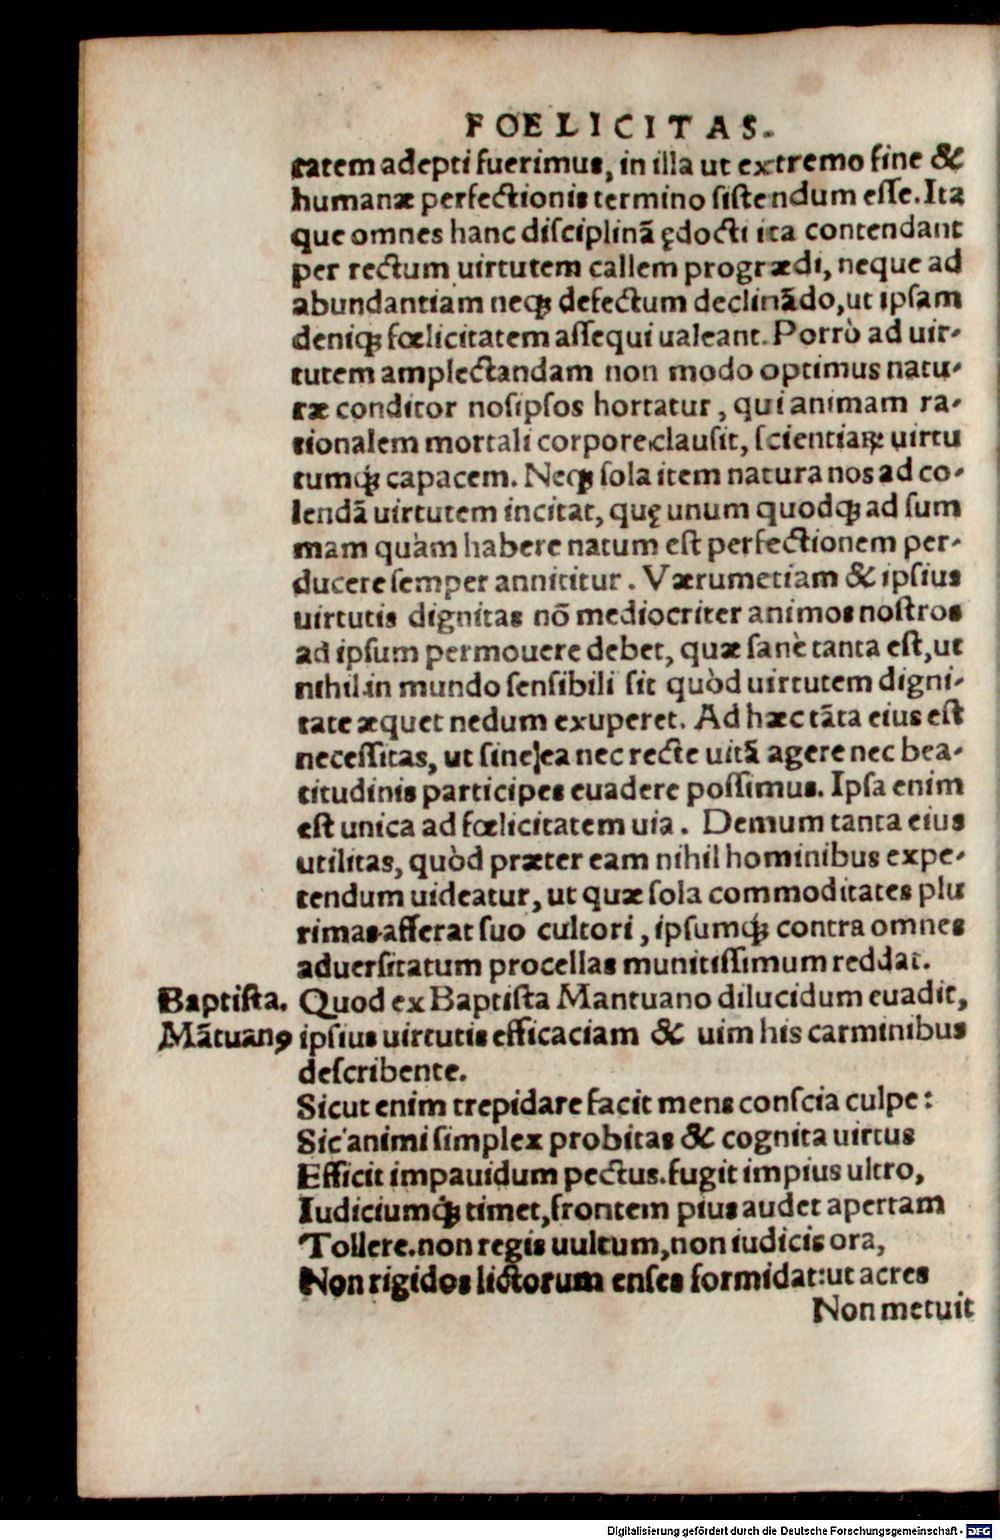 FOELICITAS.
tatem adepti fuerimus, in illa ut extremo fine &
humanæ perfectionis termino sistendum esse. Ita
que omnes hanc disciplinã ędocti ita contendant
per rectum uirtutem callem progrædi, neque ad
abundantiam neqꝫ defectum declinãdo, ut ipsam
deniqꝫ fœlicitatem assequi ualeant. Porrò ad uir-
tutem amplectandam non modo optimus natu-
ræ conditor nosipsos hortatur, qui animam ra-
tionalem mortali corpore clausit, scientiaꝝ uirtu
tumqꝫ capacem. Neqꝫ sola item natura nos ad co-
lendã uirtutem incitat, quę unum quodqꝫ ad sum
mam quàm habere natum est perfectionem per-
ducere semper annititur. Værumetiam & ipsius
uirtutis dignitas nõ mediocriter animos nostros
ad ipsum permouere debet, quæ sanè tanta est, ut
nihil in mundo sensibili sit quòd uirtutem digni-
tate æquet nedum exuperet. Ad hæc tãta eius est
necessitas, ut sine ea nec recte uitã agere nec bea-
titudinis participes euadere possimus. Ipsa enim
est unica ad fœlicitatem uia. Demum tanta eius
utilitas, quòd præter eam nihil hominibus expe-
tendum uideatur, ut quæ sola commoditates plu
rimas afferat suo cultori, ipsumqꝫ contra omnes
aduersitatum procellas munitissimum reddat.
Baptista. Quod ex Baptista Mantuano dilucidum euadit,
Mãtuanꝰ ipsius uirtutis efficaciam & uim his carminibus
describente.
Sicut enim trepidare facit mens conscia culpe:
Sic animi simplex probitas & cognita uirtus
Efficit impauidum pectus. fugit impius ultro,
Iudiciumqꝫ timet, frontem pius audet apertam
Tollere. non regis uultum, non iudicis ora,
Non rigidos lictorum enses formidat: ut acres
Non metuit
Digitalisierung gefördert durch die Deutsche Forschungsgemeinschaft - DFG